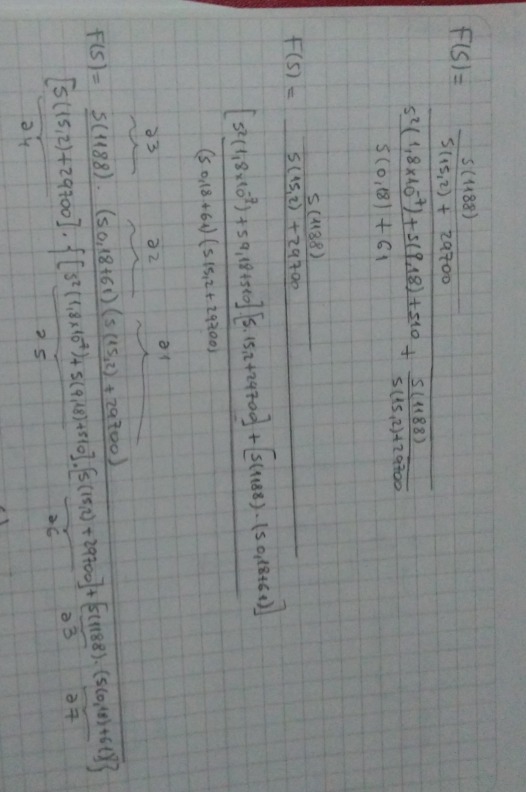 S(1188)
S(15,2) + 29700
F(S) =
S²(1,8×10⁻⁷) + S(9,18) + 510 + S(1188)
S(0,18) + 61 S(15,2) + 29700
S(1188)
F(S) = S(15,2) + 29700
[S²(1,8×10⁻⁷) + S 9,18 + 510].[S.15,2 + 29700] + [S(1188) . (S 0,18 + 61)]
(S 0,18 + 61) (S 15,2 + 29700)
a3 a2 a1
F(S) = S(1188) . (S 0,18 + 61) (S(15,2) + 29700)
[S(15,2) + 29700] . {[S²(1,8×10⁻⁷) + S(9,18) + 510].[S(15,2) + 29700] + [S(1188) . (S(0,18) + 61)]}
a4 a5 a6 a3 a7